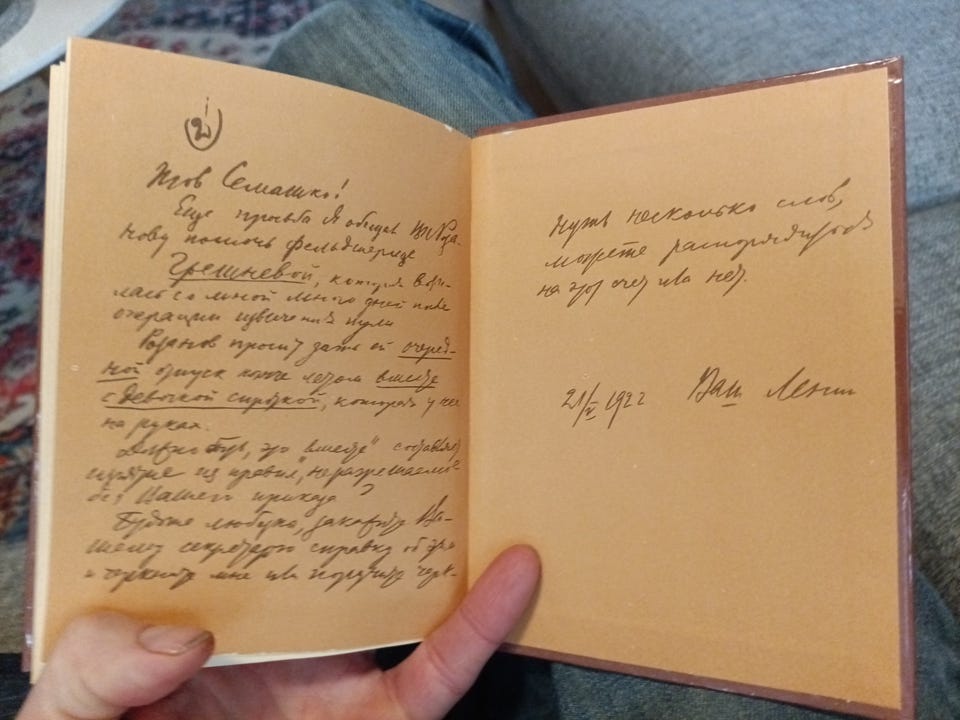 2)
тов Семашко!
Еще просьба. Я обещал В Н Роза-
нову помочь фельдшерице
Грешневой, которая вози-
лась со мной много дней после
операции извлечения пули
Розанов просит дать ей очеред-
ной отпуск конче летом вместе
с девочкой сироткой, которая у нее
на руках.
Должно быть, это "вместе" составляет
изъятие из правил, неразрешаемое
без Вашего приказа?
Будьте любезны, закажите Ва-
шему секретарю справку об этом
и черкните мне или поручите черк-
нуть несколько слов,
можете распорядиться
на этот счет или нет.
21/V 1922 Ваш Ленин